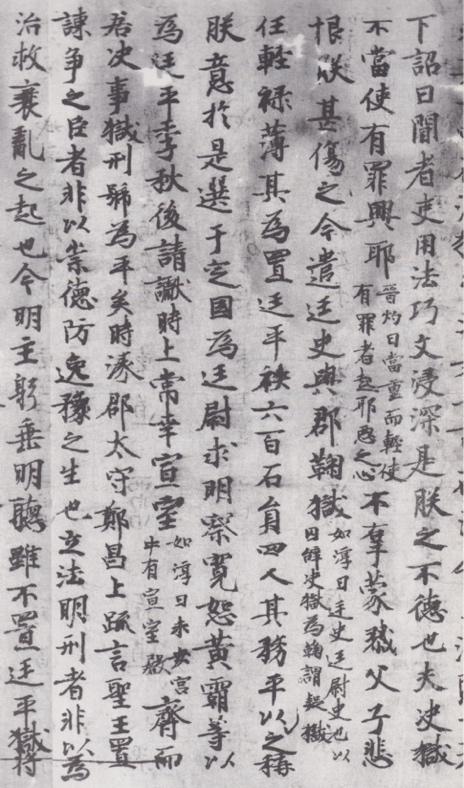 下詔曰閒者吏用法巧文浸深是朕之不德也夫决獄
不當使有罪興耶晉灼曰當重而輕使
有罪者起耶惡之心不辜蒙戮父子悲
恨朕甚傷之今遣廷史與郡鞠獄如淳曰廷史廷尉史也以
囚辭决獄為鞠謂疑獄
任輕祿薄其為置廷平秩六百石員四人其務平以之稱
朕意於是選于定國為廷尉求明察寬恕黃霸等以
為廷平季秋後請讞時上常幸宣室如淳曰未央宮
中有宣室殿齊而
居决事獄刑號為平矣時涿郡太守鄭昌上疏言聖王置
諫爭之臣者非以崇德防逸豫之生也立法明刑者非以為
治救衰亂之起也今明主躬垂明聽雖不置廷平獄將